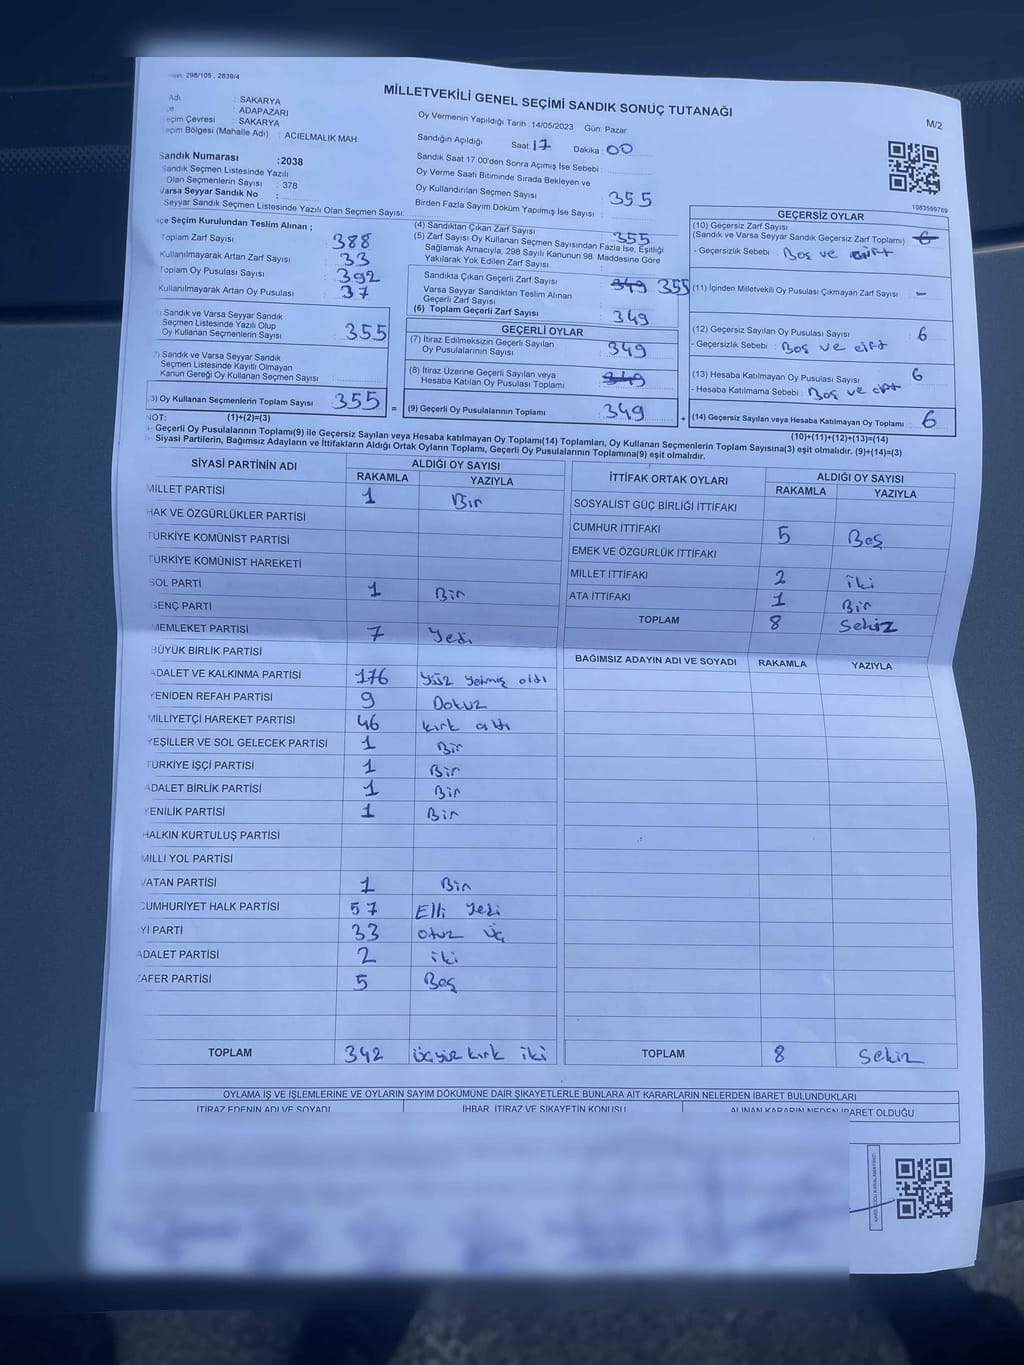 298/105 , 2839/4
MİLLETVEKİLİ GENEL SEÇİMİ SANDIK SONUÇ TUTANAĞI
M/2
Adı : SAKARYA
: ADAPAZARI
eçim Çevresi : SAKARYA
eçim Bölgesi (Mahalle Adı) : ACIELMALIK MAH
Sandık Numarası :2038
Sandık Seçmen Listesinde Yazılı
Olan Seçmenlerin Sayısı : 378
Varsa Seyyar Sandık No :
Seyyar Sandık Seçmen Listesinde Yazılı Olan Seçmen Sayısı:
Oy Vermenin Yapıldığı Tarih :14/05/2023 Gün: Pazar
Sandığın Açıldığı Saat: 17 Dakika : 00
Sandık Saat 17:00'den Sonra Açımış İse Sebebi :
Oy Verme Saati Bitiminde Sırada Bekleyen ve
Oy Kullandırılan Seçmen Sayısı : 355
Birden Fazla Sayım Döküm Yapılmış İse Sayısı :
1083599769
lçe Seçim Kurulundan Teslim Alınan ;
Toplam Zarf Sayısı : 388
Kullanılmayarak Artan Zarf Sayısı : 33
Toplam Oy Pusulası Sayısı : 392
Kullanılmayarak Artan Oy Pusulası : 37
) Sandık ve Varsa Seyyar Sandık
Seçmen Listesinde Yazılı Olup
Oy Kullanan Seçmenlerin Sayısı : 355
) Sandık ve Varsa Seyyar Sandık
Seçmen Listesinde Kayıtlı Olmayan
Kanun Gereği Oy Kullanan Seçmen Sayısı :
3) Oy Kullanan Seçmenlerin Toplam Sayısı 355 =
NOT: (1)+(2)=(3)
(4) Sandıktan Çıkan Zarf Sayısı : 355
(5) Zarf Sayısı Oy Kullanan Seçmen Sayısından Fazla İse, Eşitliği
Sağlamak Amacıyla, 298 Sayılı Kanunun 98. Maddesine Göre
Yakılarak Yok Edilen Zarf Sayısı :
Sandıkta Çıkan Geçerli Zarf Sayısı : 349 355
Varsa Seyyar Sandıktan Teslim Alınan
Geçerli Zarf Sayısı :
(6) Toplam Geçerli Zarf Sayısı : 349
GEÇERLİ OYLAR
(7) İtiraz Edilmeksizin Geçerli Sayılan
Oy Pusulalarının Sayısı : 349
(8) İtiraz Üzerine Geçerli Sayılan veya
Hesaba Katılan Oy Pusulası Toplamı : 349
(9) Geçerli Oy Pusulalarının Toplamı : 349 +
GEÇERSİZ OYLAR
(10) Geçersiz Zarf Sayısı
(Sandık ve Varsa Seyyar Sandık Geçersiz Zarf Toplamı) : 6
- Geçersizlik Sebebi : Boş ve çift
(11) İçinden Milletvekili Oy Pusulası Çıkmayan Zarf Sayısı : -
(12) Geçersiz Sayılan Oy Pusulası Sayısı : 6
- Geçersizlik Sebebi : Boş ve çift
(13) Hesaba Katılmayan Oy Pusulası Sayısı : 6
- Hesaba Katılmama Sebebi : Boş ve çift
(14) Geçersiz Sayılan veya Hesaba Katılmayan Oy Toplamı : 6
(10)+(11)+(12)+(13)=(14)
- Geçerli Oy Pusulalarının Toplamı(9) ile Geçersiz Sayılan veya Hesaba katılmayan Oy Toplamı(14) Toplamları, Oy Kullanan Seçmenlerin Toplam Sayısına(3) eşit olmalıdır. (9)+(14)=(3)
- Siyasi Partilerin, Bağımsız Adayların ve İttifakların Aldığı Ortak Oyların Toplamı, Geçerli Oy Pusulalarının Toplamına(9) eşit olmalıdır.
SİYASİ PARTİNİN ADI ALDIĞI OY SAYISI
RAKAMLA YAZIYLA
MİLLET PARTİSİ 1 Bir
HAK VE ÖZGÜRLÜKLER PARTİSİ
TÜRKİYE KOMÜNİST PARTİSİ
TÜRKİYE KOMÜNİST HAREKETİ
SOL PARTİ 1 Bir
GENÇ PARTİ
MEMLEKET PARTİSİ 7 Yedi
BÜYÜK BİRLİK PARTİSİ
ADALET VE KALKINMA PARTİSİ 176 Yüz Yetmiş altı
YENİDEN REFAH PARTİSİ 9 Dokuz
MİLLİYETÇİ HAREKET PARTİSİ 46 kırk altı
YEŞİLLER VE SOL GELECEK PARTİSİ 1 Bir
TÜRKİYE İŞÇİ PARTİSİ 1 Bir
ADALET BİRLİK PARTİSİ 1 Bir
YENİLİK PARTİSİ 1 Bir
HALKIN KURTULUŞ PARTİSİ
MİLLİ YOL PARTİSİ
VATAN PARTİSİ 1 Bir
CUMHURİYET HALK PARTİSİ 57 Elli Yedi
İYİ PARTİ 33 Otuz Üç
ADALET PARTİSİ 2 iki
ZAFER PARTİSİ 5 Beş
TOPLAM 342 Üçyüz kırk iki
İTTİFAK ORTAK OYLARI ALDIĞI OY SAYISI
RAKAMLA YAZIYLA
SOSYALİST GÜÇ BİRLİĞİ İTTİFAKI
CUMHUR İTTİFAKI 5 Beş
EMEK VE ÖZGÜRLÜK İTTİFAKI
MİLLET İTTİFAKI 2 iki
ATA İTTİFAKI 1 Bir
TOPLAM 8 Sekiz
BAĞIMSIZ ADAYIN ADI VE SOYADI RAKAMLA YAZIYLA
TOPLAM 8 Sekiz
OYLAMA İŞ VE İŞLEMLERİNE VE OYLARIN SAYIM DÖKÜMÜNE DAİR ŞİKAYETLERLE BUNLARA AİT KARARLARIN NELERDEN İBARET BULUNDUKLARI
İTİRAZ EDENİN ADI VE SOYADI İHBAR, İTİRAZ VE ŞİKAYETİN KONUSU ALINAN KARARIN NEDEN İBARET OLDUĞU